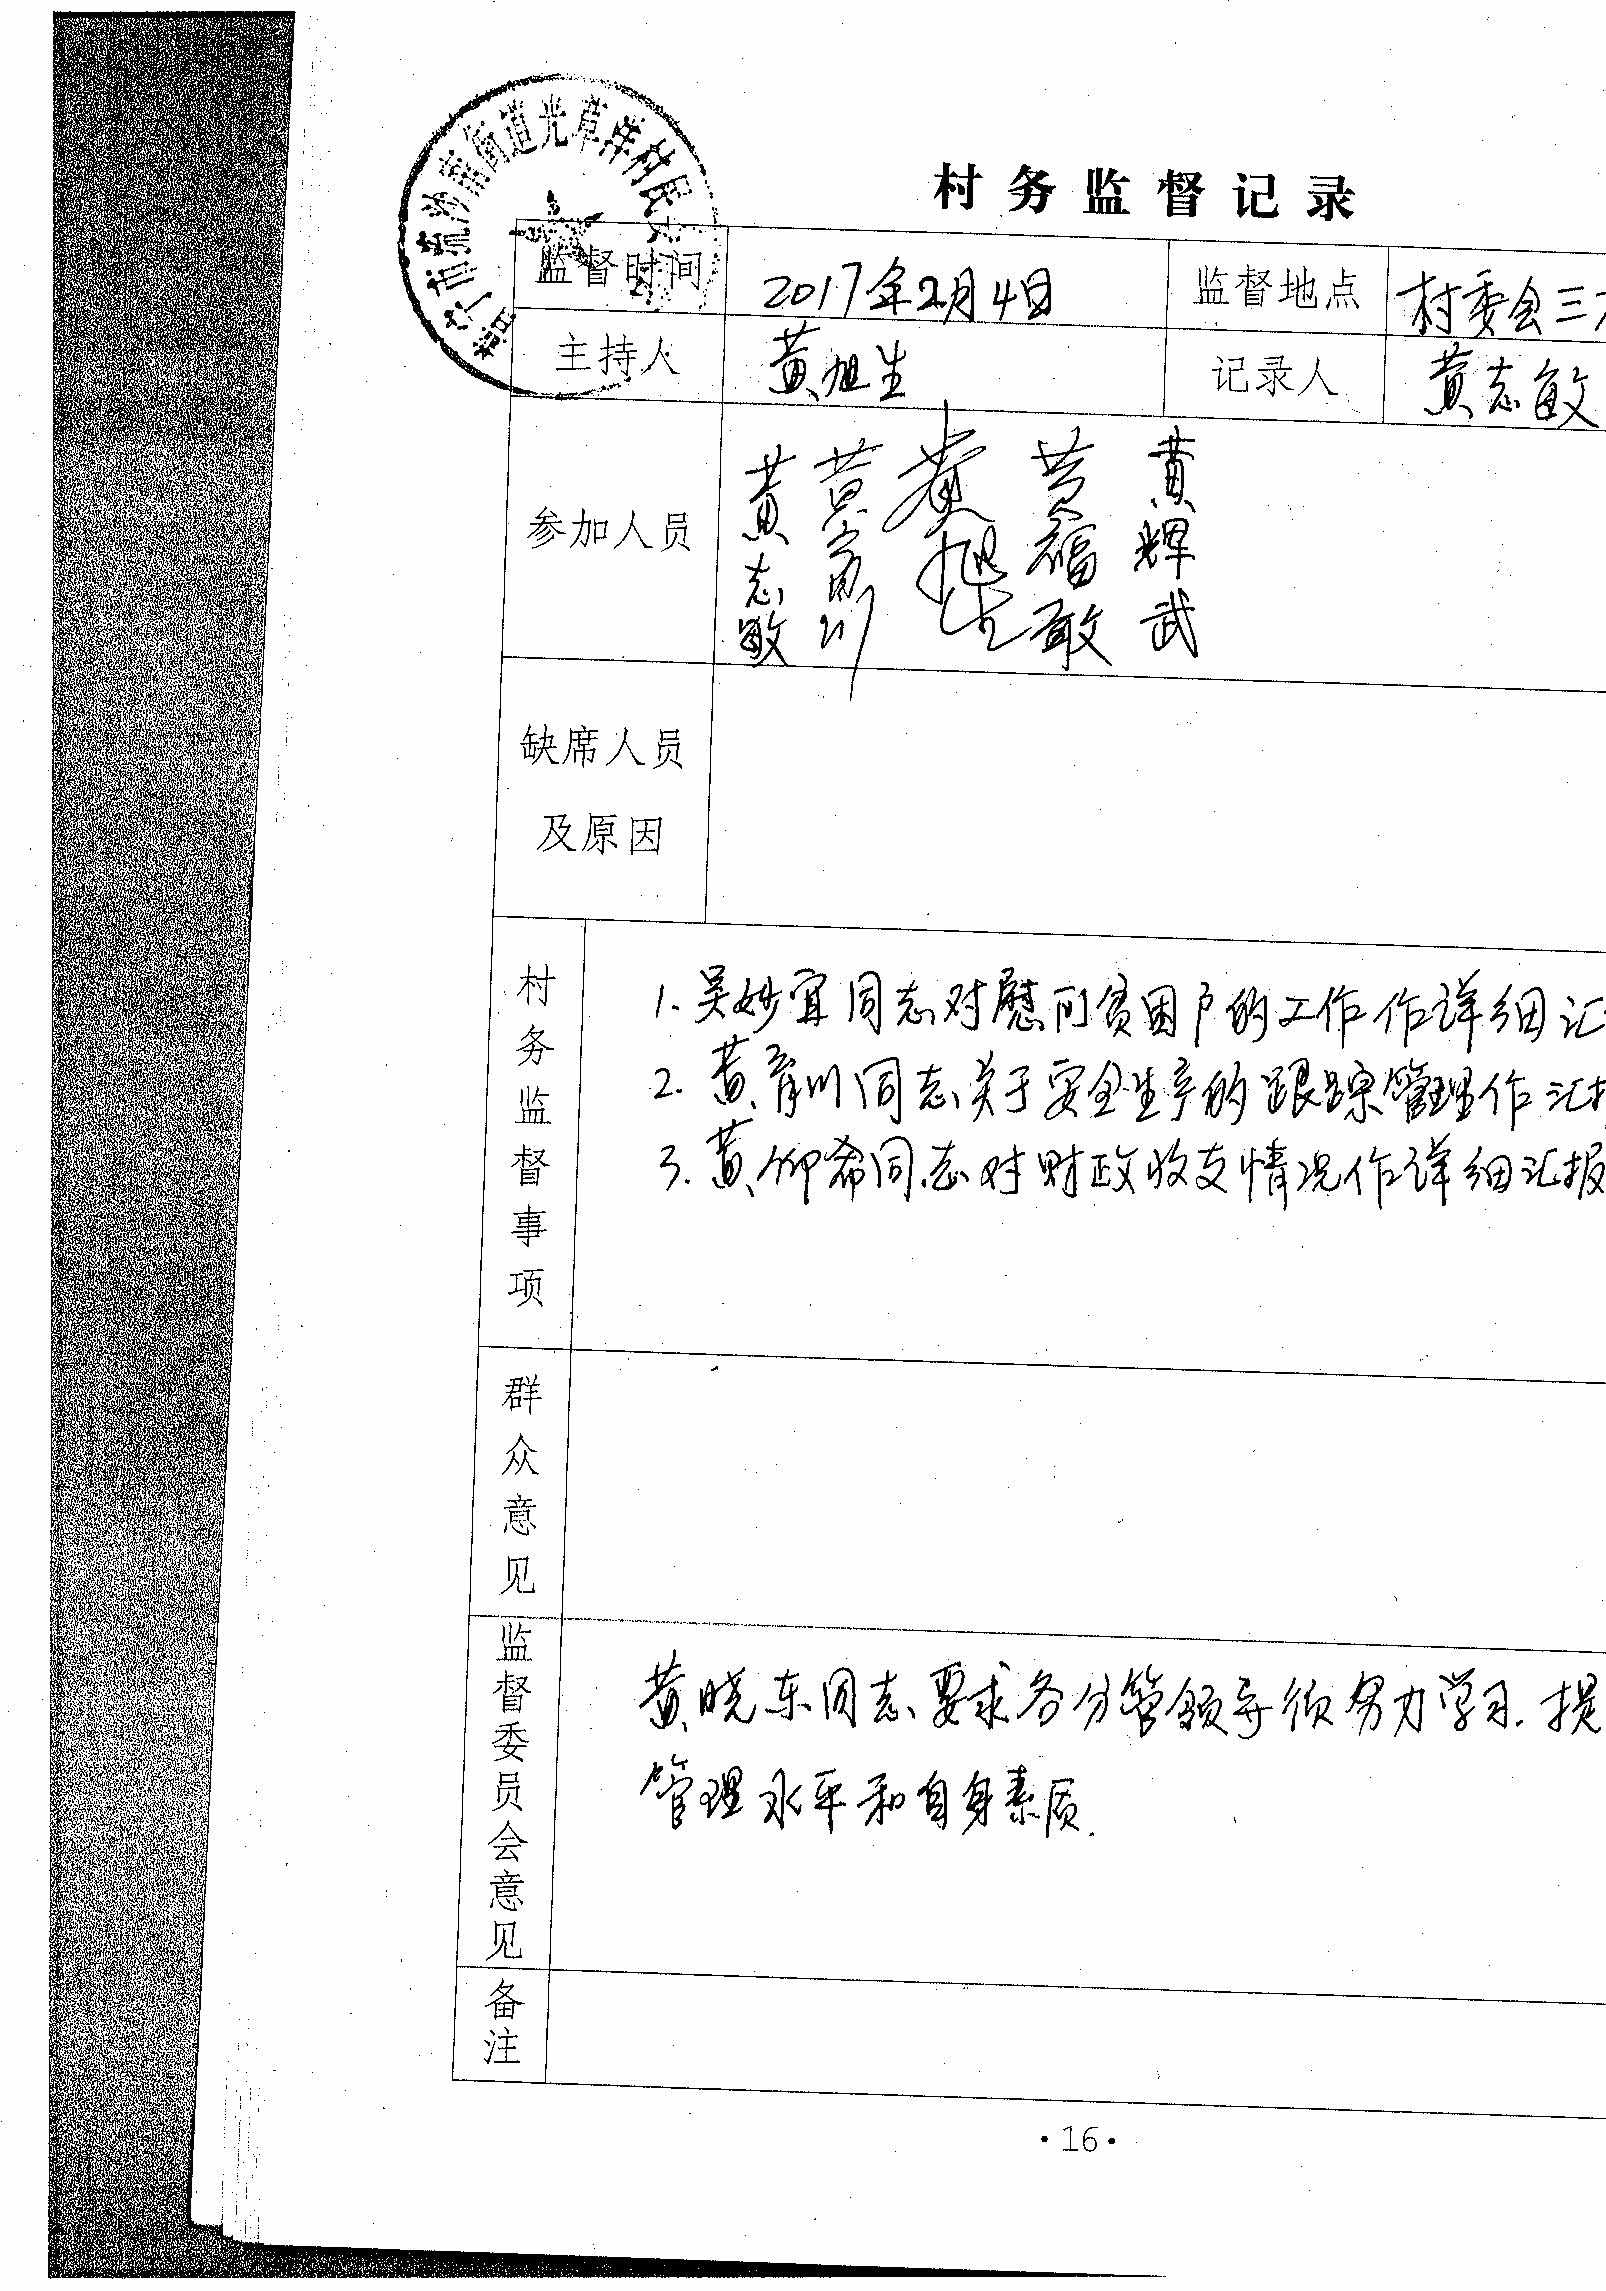 普宁市流沙南街道光草洋村民
村务监督记录
监督时间 2017年2月4日 监督地点 村委会三
主持人 黄旭生 记录人 黄志敏
参加人员 黄志敏 黄育川 黄旭生 黄福敢 黄辉武
缺席人员
及原因
村务监督事项
1.吴妙宜同志对慰问贫困户的工作作详细汇
2.黄育川同志关于安全生产的跟踪管理作汇报
3.黄仰希同志对财政收支情况作详细汇报
群众意见
监督委员会意见
黄晓东同志要求各分管领导须努力学习.提
管理水平和自身素质.
备注
·16·